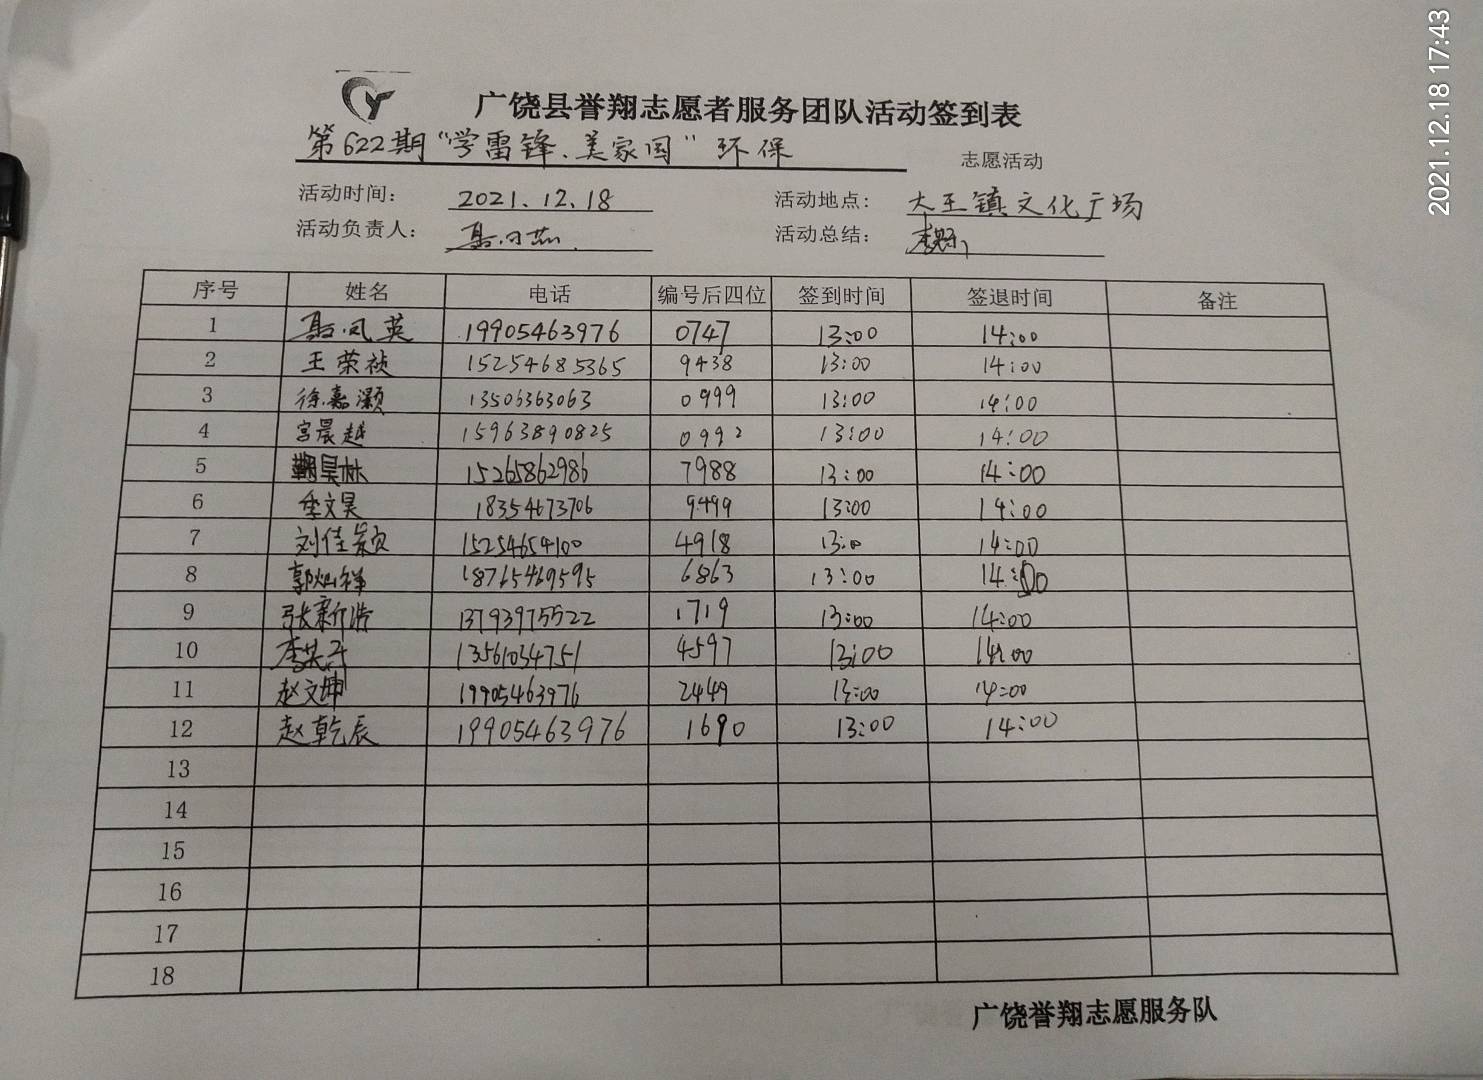 2021.12.18 17:43
广饶县誉翔志愿者服务团队活动签到表
第622期“学雷锋、美家国”环保 志愿活动
活动时间： 2021.12.18 活动地点： 大王镇文化广场
活动负责人： 活动总结：
序号 姓名 电话 编号后四位 签到时间 签退时间 备注
1 聂凤英 19905463976 0747 13:00 14:00
2 王荣祯 15254685365 9438 13:00 14:00
3 徐嘉灏 13506363063 0999 13:00 14:00
4 宫晨越 15963890825 0992 13:00 14:00
5 15265862986 7988 13:00 14:00
6 李文昊 18354673706 9499 13:00 14:00
7 刘佳颖 15254654100 4918 13:0 14:00
8 18765469595 6863 13:00 14:00
9 张新浩 13793975522 1719 13:00 14:00
10 13561034751 4597 13:00 14:00
11 赵文坤 19905463976 2449 13:00 14:00
12 赵乾辰 19905463976 1690 13:00 14:00
13
14
15
16
17
18
广饶誉翔志愿服务队